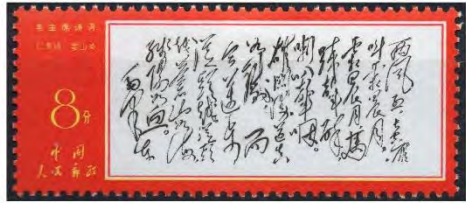 毛主席诗词
忆秦娥 娄山关
8分
中国
人民邮政
西风烈 长空雁
叫霜晨月。
霜晨月,马
蹄声碎,
喇叭声咽。
雄关漫道真
如铁 而
今迈步
从头越 从头
越 苍山如海
残阳如血。
毛泽东